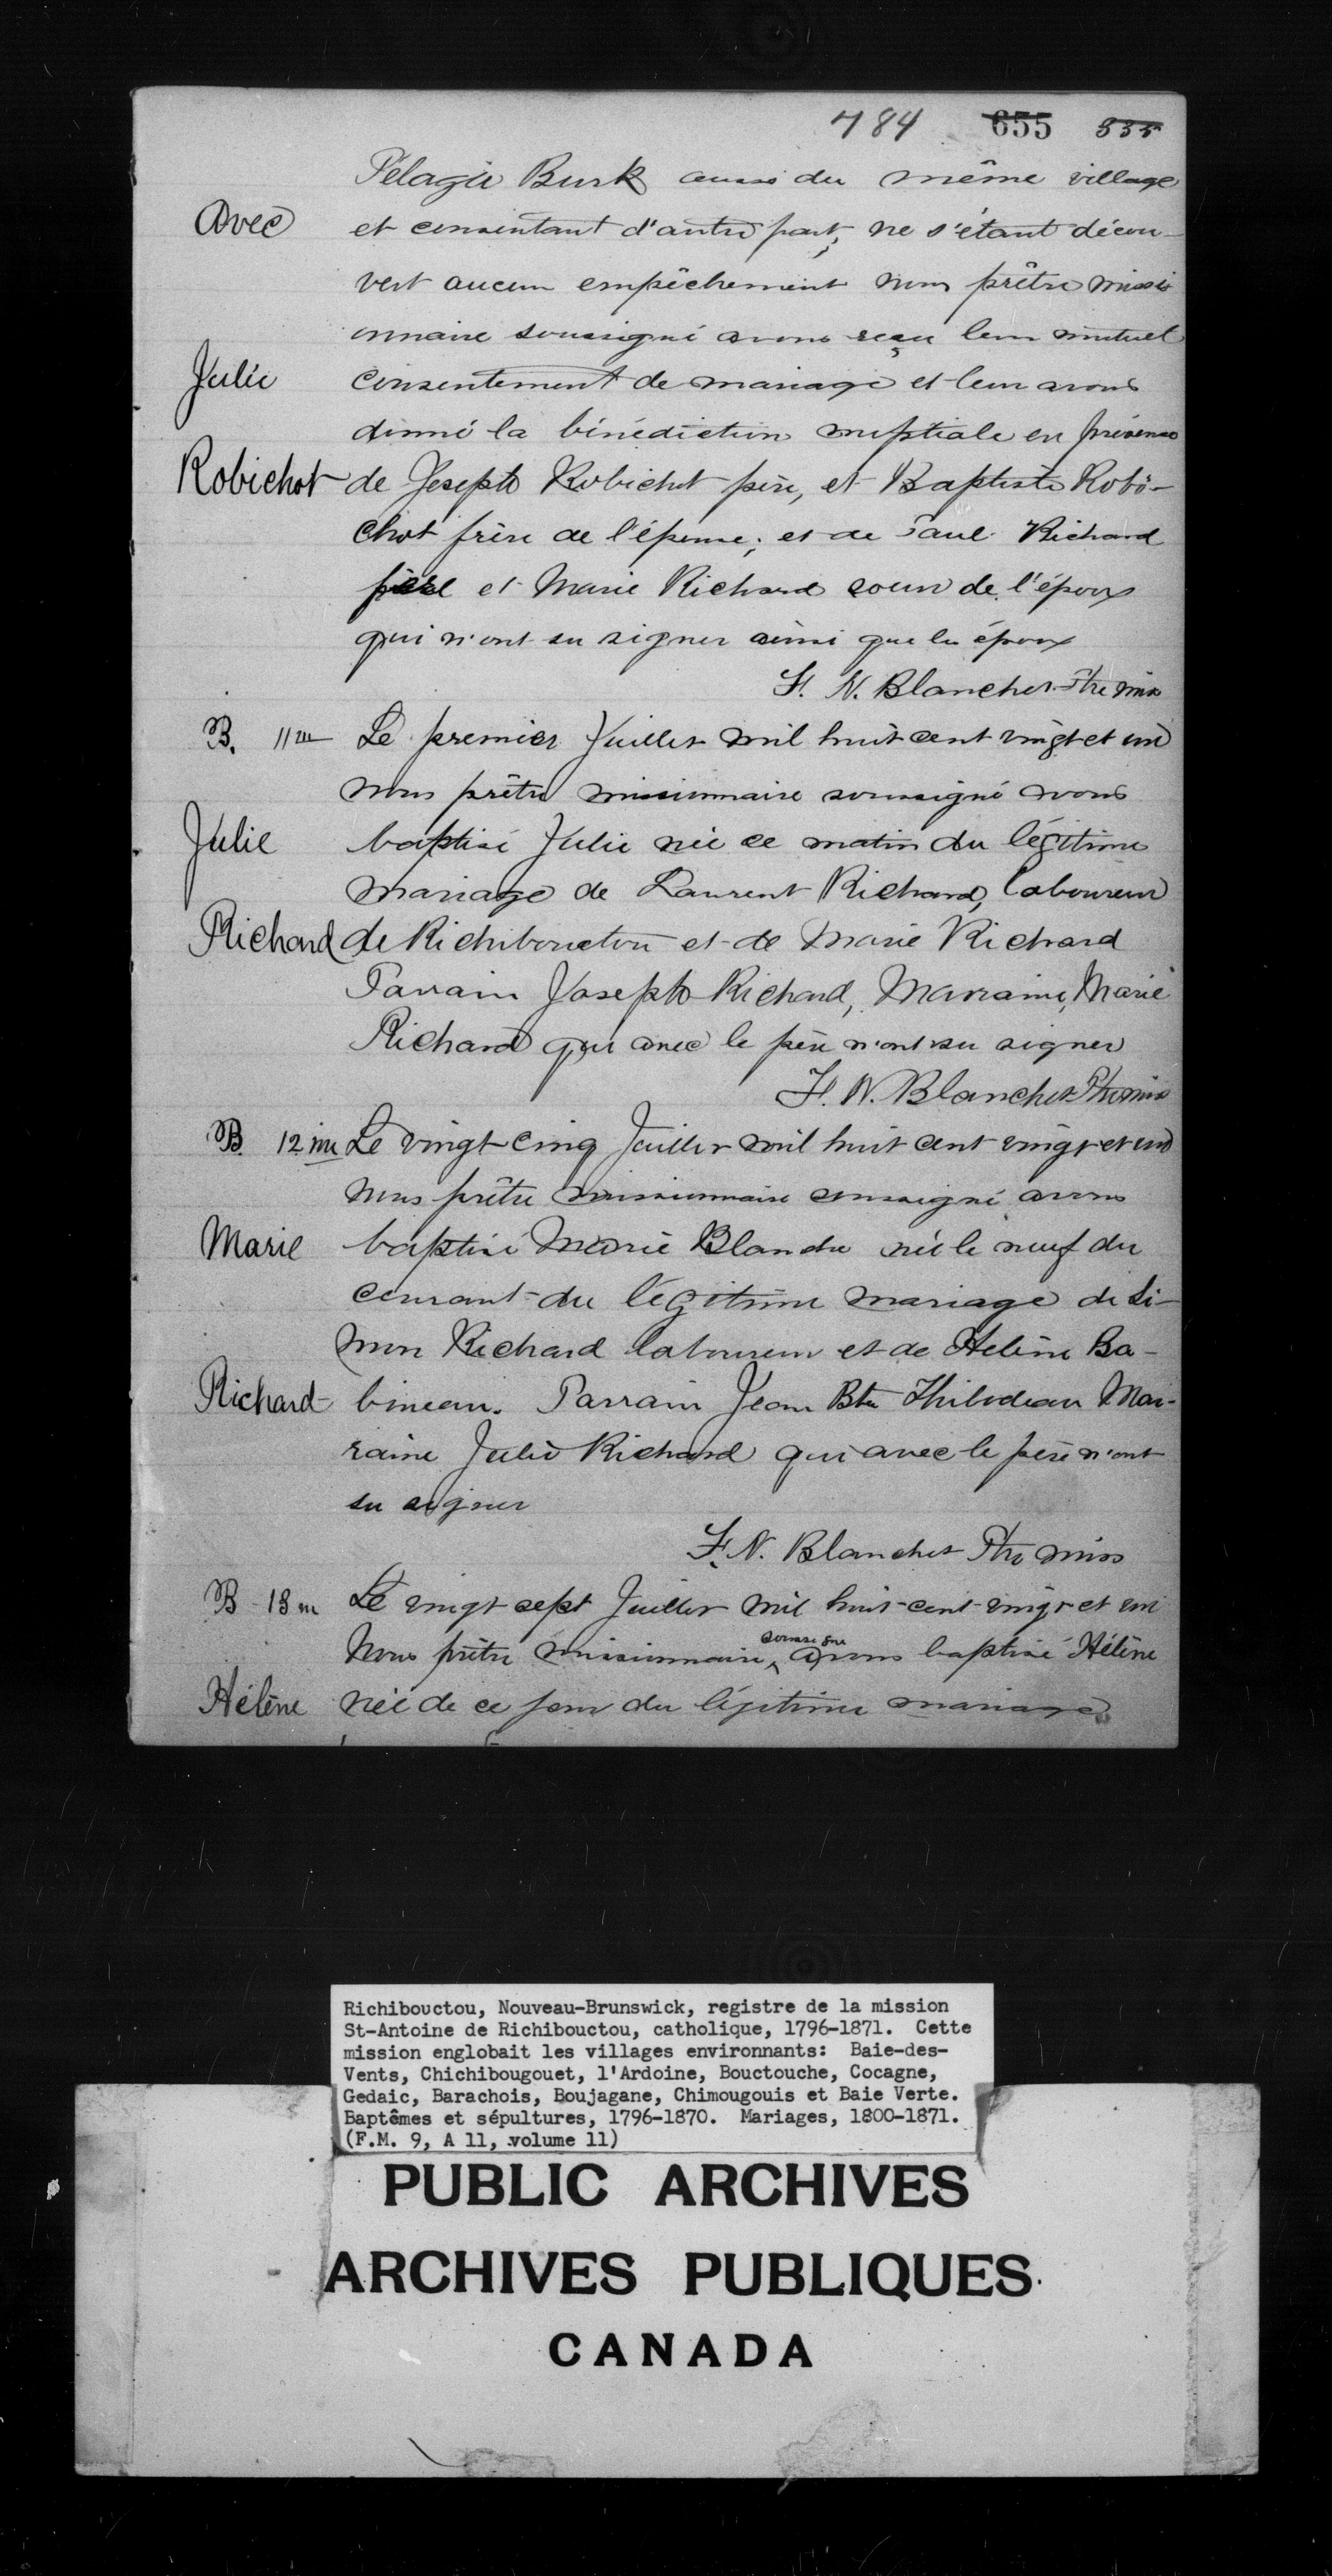 784 655 335
Pélagie Burk aussi du même village
Avec et consentant d'autre part, ne s'étant décou-
vert aucun empêchement nous prêtre missi
onnaire soussigné avons reçu leur mutuel
Julie consentement de mariage et leur avons
donné la bénédiction nuptiale en présence
Robichot de Joseph Robichot père, et Baptiste Robi-
chot frère de l'épouse; et de Paul Richard
père et Marie Richard soeur de l'époux
qui n'ont su signer ainsi que les époux
F. N. Blanchet Ptre miss
B. 11m Le premier Juillet mil huit cent vingt et un
nous prêtre missionnaire soussigné avons
Julie baptisé Julie née ce matin du légitime
mariage de Laurent Richard, laboureur
Richard de Richibouctou et de Marie Richard
Parrain Joseph Richard, Marraine, Marie
Richard qui avec le père n'ont su signer
F. N. Blanchet Ptre miss
B 12me Le vingt cinq Juillet mil huit cent vingt et un
nous prêtre missionnaire soussigné avons
Marie baptisé Marie Blanche née le neuf du
courant du légitime mariage de Si-
mon Richard laboureur et de Helène Ba-
Richard bineau. Parrain Jean Bte Thibodeau Mar-
raine Julie Richard qui avec le père n'ont
su signer
F. N. Blanchet Ptre miss
B 13m Le vingt sept Juillet mil huit cent vingt et un
Nous prêtre missionnaire soussigné avons baptisé Hélène
Hélène née de ce jour du légitime mariage
Richibouctou, Nouveau-Brunswick, registre de la mission
St-Antoine de Richibouctou, catholique, 1796-1871. Cette
mission englobait les villages environnants: Baie-des-
Vents, Chichibougouet, l'Ardoine, Bouctouche, Cocagne,
Gedaic, Barachois, Boujagane, Chimougouis et Baie Verte.
Baptêmes et sépultures, 1796-1870. Mariages, 1800-1871.
(F.M. 9, A 11, volume 11)
PUBLIC ARCHIVES
ARCHIVES PUBLIQUES
CANADA